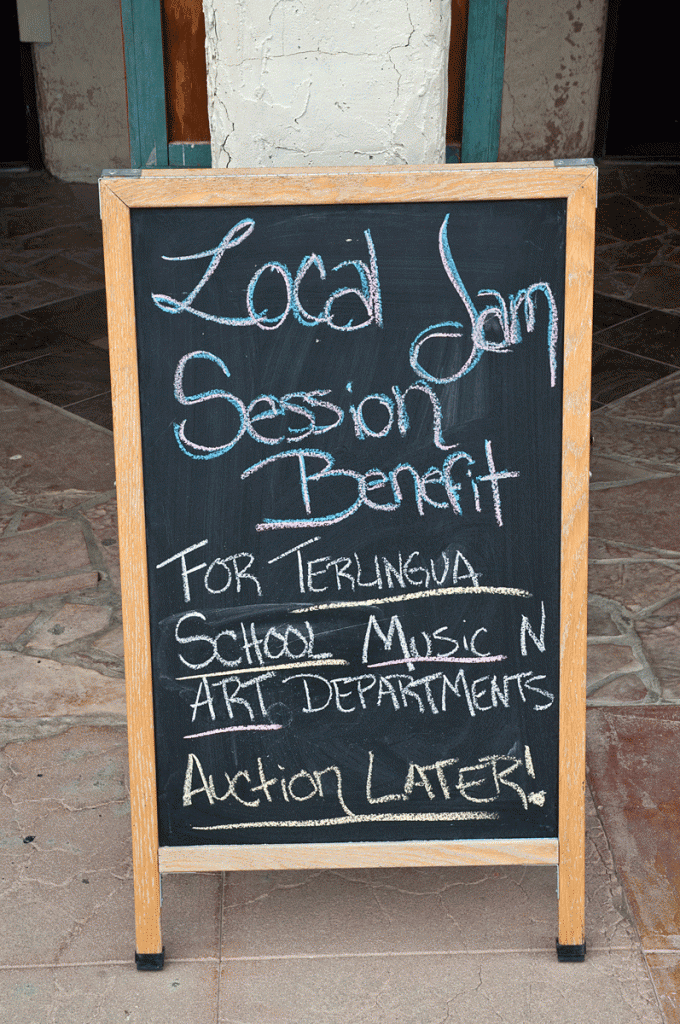 Local Jam
Session
Benefit
FOR TERLINGUA
SCHOOL MUSIC N
ART DEPARTMENTS
AUCTION LATER!